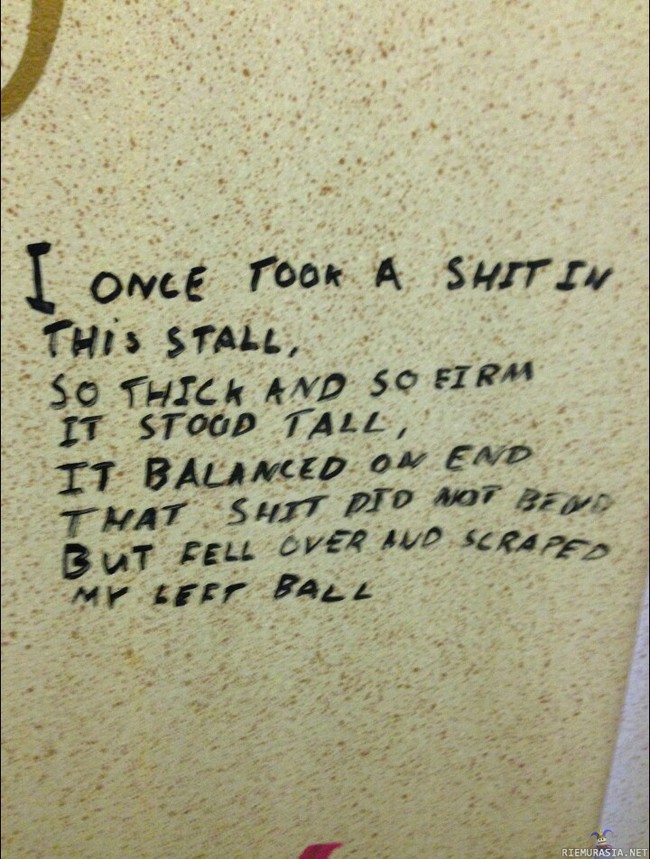 I ONCE TOOK A SHIT IN
THiS STALL,
SO THICK AND SO FIRM
IT STOOD TALL,
IT BALANCED ON END
THAT SHIT DID NOT BEND
BUT FELL OVER AND SCRAPED
MY LEFT BALL
RIEMURASIA.NET